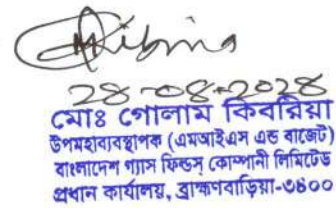 28-08-2028
মোঃ গোলাম কিবরিয়া
উপমহাব্যবস্থাপক (এমআইএস এন্ড বাজেট)
বাংলাদেশ গ্যাস ফিল্ডস্ কোম্পানী লিমিটেড
প্রধান কার্যালয়, ব্রাহ্মণবাড়িয়া-৩৪০০